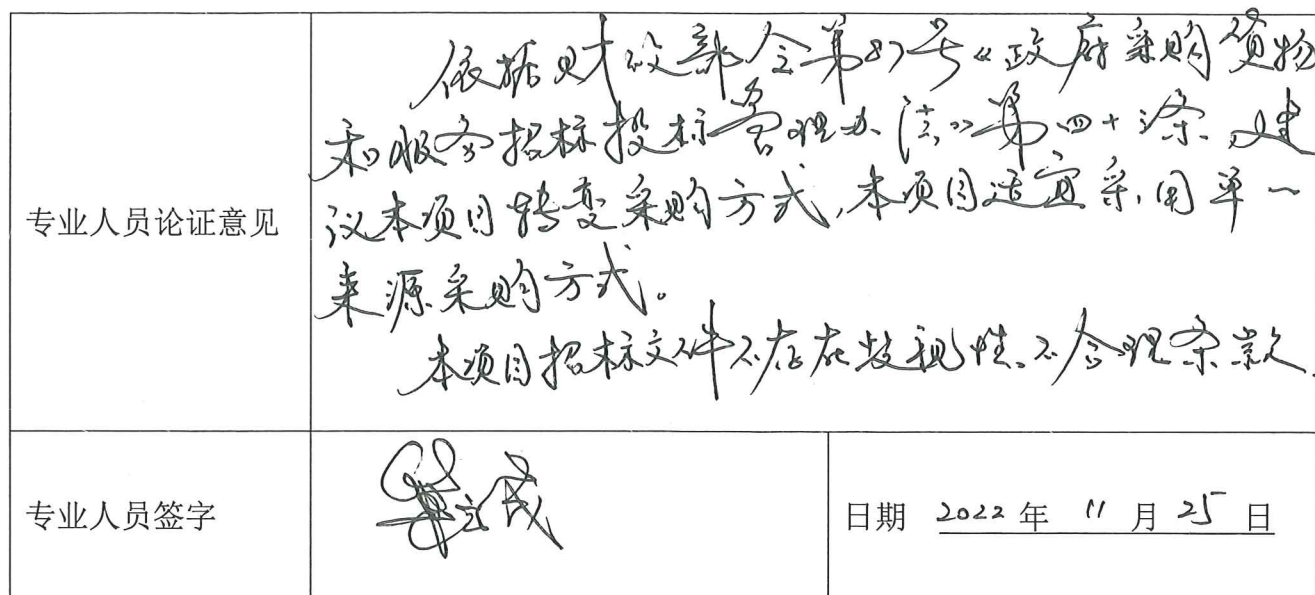 专业人员论证意见
依据财政部令第87号《政府采购货物
和服务招标投标管理办法》第四十三条,建
议本项目转变采购方式,本项目适宜采用单一
来源采购方式。
本项目招标文件不存在歧视性、不合理条款.
专业人员签字
日期 2022 年 11 月 25 日